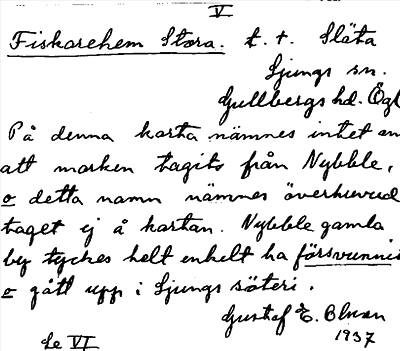 V
Fiskarehem Stora. t. t. Släta
Ljungs sn.
Gullbergs hd. Ögl
På denna karta nämnes intet om
att marken tagits från Nybble,
o detta namn nämnes överhuvud
taget ej å kartan. Nybble gamla
by tyckes helt enkelt ha försvunnit
o gått upp i Ljungs säteri.
Gustaf E. Blman
1937
Se VI